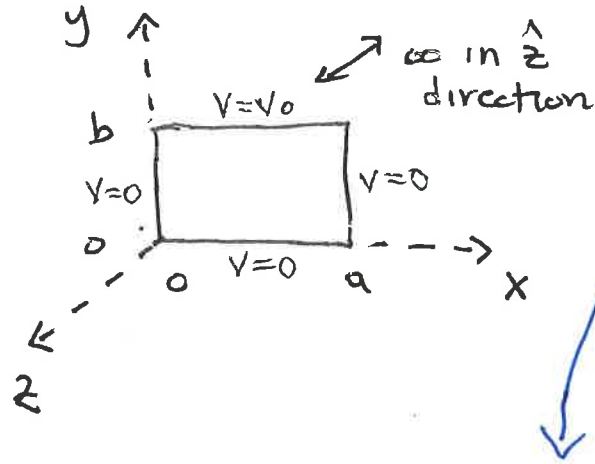 y
∞ in ẑ
direction
V=V₀
b
V=0
V=0
0
V=0
0
a
x
z